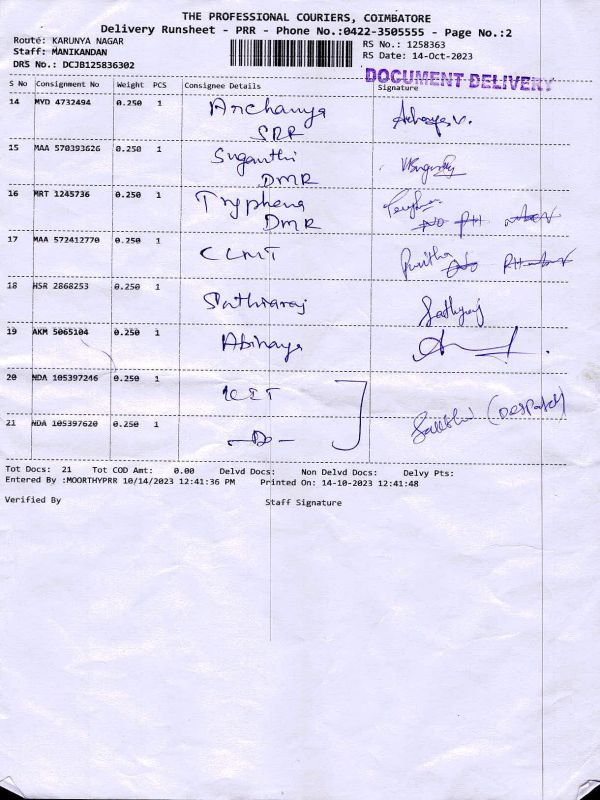 THE PROFESSIONAL COURIERS, COIMBATORE
Delivery Runsheet - PRR - Phone No.:0422-3505555 - Page No.:2
Route: KARUNYA NAGAR
RS No.: 1258363
Staff: MANIKANDAN
RS Date: 14-Oct-2023
DRS No.: DCJB125836302
DOCUMENT DELIVERY
S No Consignment No Weight PCS Consignee Details Signature
14 MYD 4732494 0.250 1 Archanya
SRR
15 MAA 570393626 0.250 1 Suganthi
DMR
16 MRT 1245736 0.250 1 Tryphena
DMR
NO PH
17 MAA 572412770 0.250 1 CLMT Pavitha
18 HSR 2868253 0.250 1 Sathiaraj Sathyaraj
19 AKM 5065104 0.250 1 Abinaya
20 NDA 105397246 0.250 1 KIT
(Despatch)
21 NDA 105397620 0.250 1 -Do-
Tot Docs: 21 Tot COD Amt: 0.00 Delvd Docs: Non Delvd Docs: Delvy Pts:
Entered By :MOORTHYPRR 10/14/2023 12:41:36 PM Printed On: 14-10-2023 12:41:48
Verified By Staff Signature